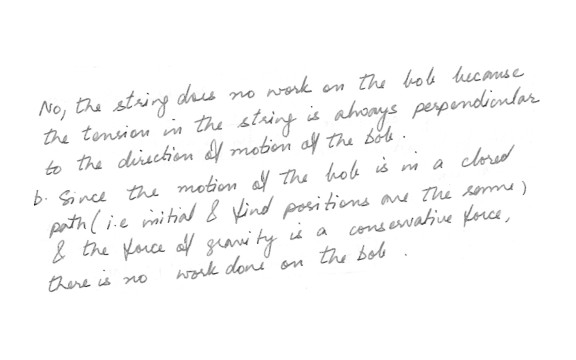 No, the string does no work on the bob because
the tension in the string is always perpendicular
to the direction of motion of the bob.
b. Since the motion of the bob is in a closed
path (i.e initial & find positions are the same)
& the force of gravity is a conservative force,
there is no work done on the bob.